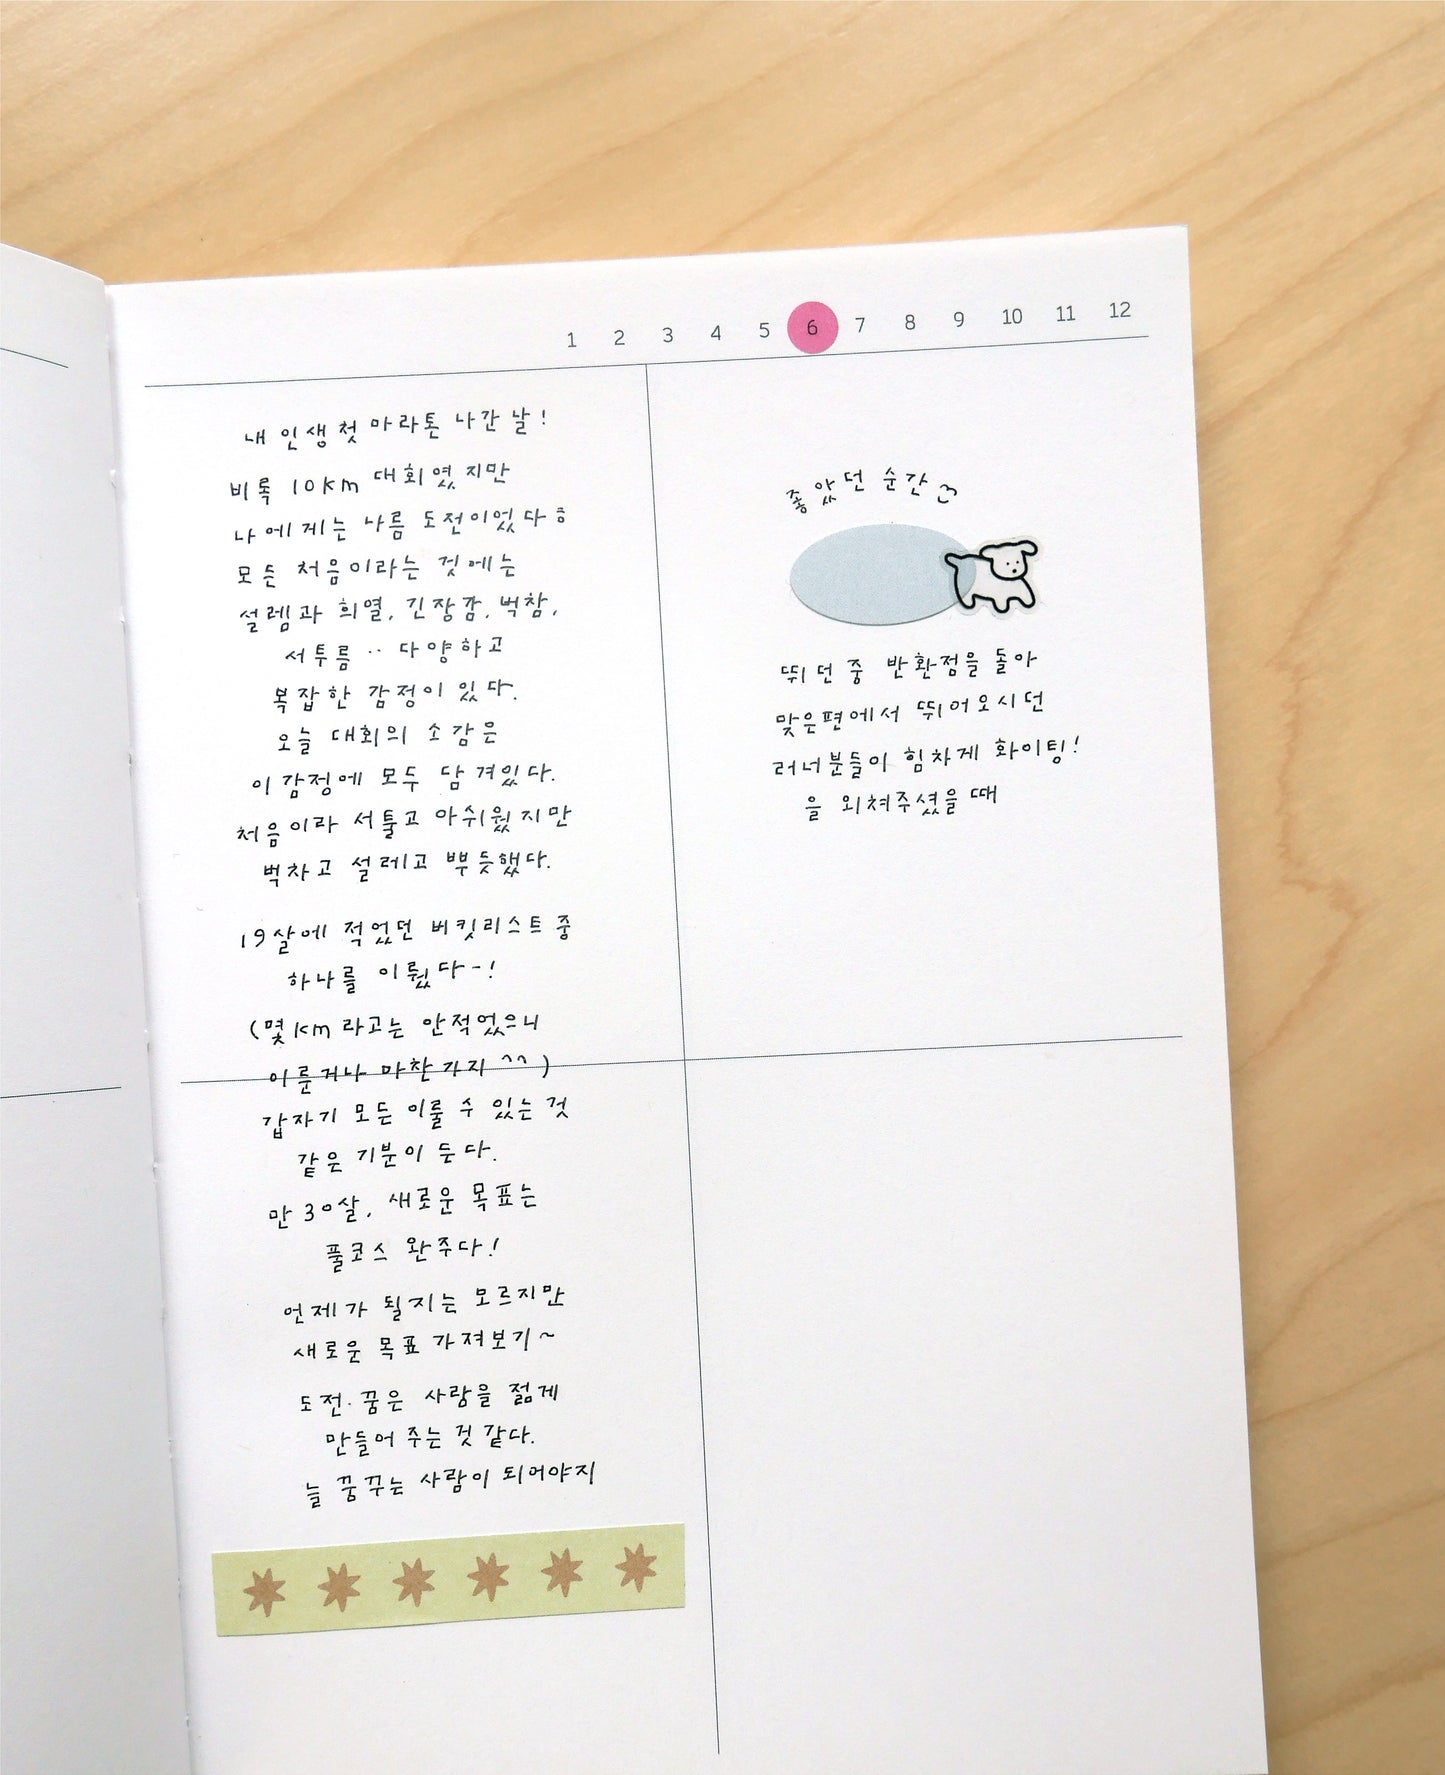 1 2 3 4 5 6 7 8 9 10 11 12
내 인생 첫 마라톤 나간 날!
비록 10km 대회였지만
나에게는 나름 도전이었다ㅎ
모든 처음이라는 것에는
설렘과 희열, 긴장감, 벅참,
서투름 ·· 다양하고
복잡한 감정이 있다.
오늘 대회의 소감은
이 감정에 모두 담겨있다.
처음이라 서툴고 아쉬웠지만
벅차고 설레고 뿌듯했다.
19살에 적었던 버킷리스트 중
하나를 이뤘다-!
(몇km라고는 안적었으니
이룬거나 마찬가지 ^^)
갑자기 모든 이룰 수 있는 것
같은 기분이 든다.
만 30살, 새로운 목표는
풀코스 완주다!
언제가 될지는 모르지만
새로운 목표 가져보기~
도전·꿈은 사람을 젊게
만들어 주는 것 같다.
늘 꿈꾸는 사람이 되어야지
좋았던 순간
뛰던 중 반환점을 돌아
맞은편에서 뛰어오시던
러너분들이 힘차게 화이팅!
을 외쳐주셨을 때